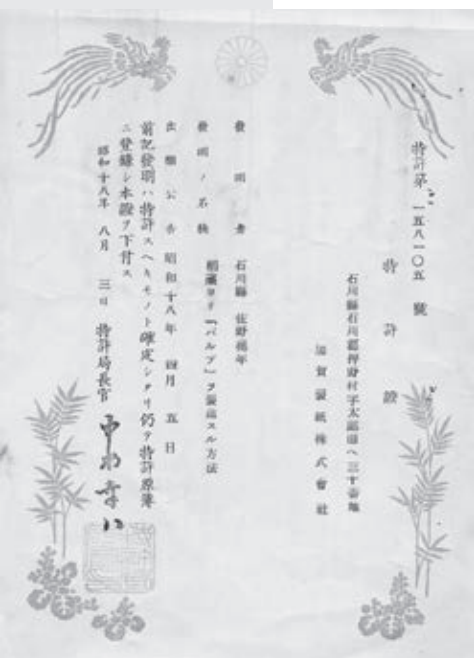 特許第一五八一〇五號
特許證
石川縣石川郡押野村字太郎田へ三十番地
加賀製紙株式會社
發明者 石川縣 佐野
發明ノ名稱 稻藁ヨリ「パルプ」ヲ製造スル方法
出願公告 昭和十八年 四月 五日
前記發明ハ特許スヘキモノト確定シタリ仍テ特許原簿
ニ登錄シ本證ヲ下付ス
昭和十八年 八月 三日
特許局長官 中